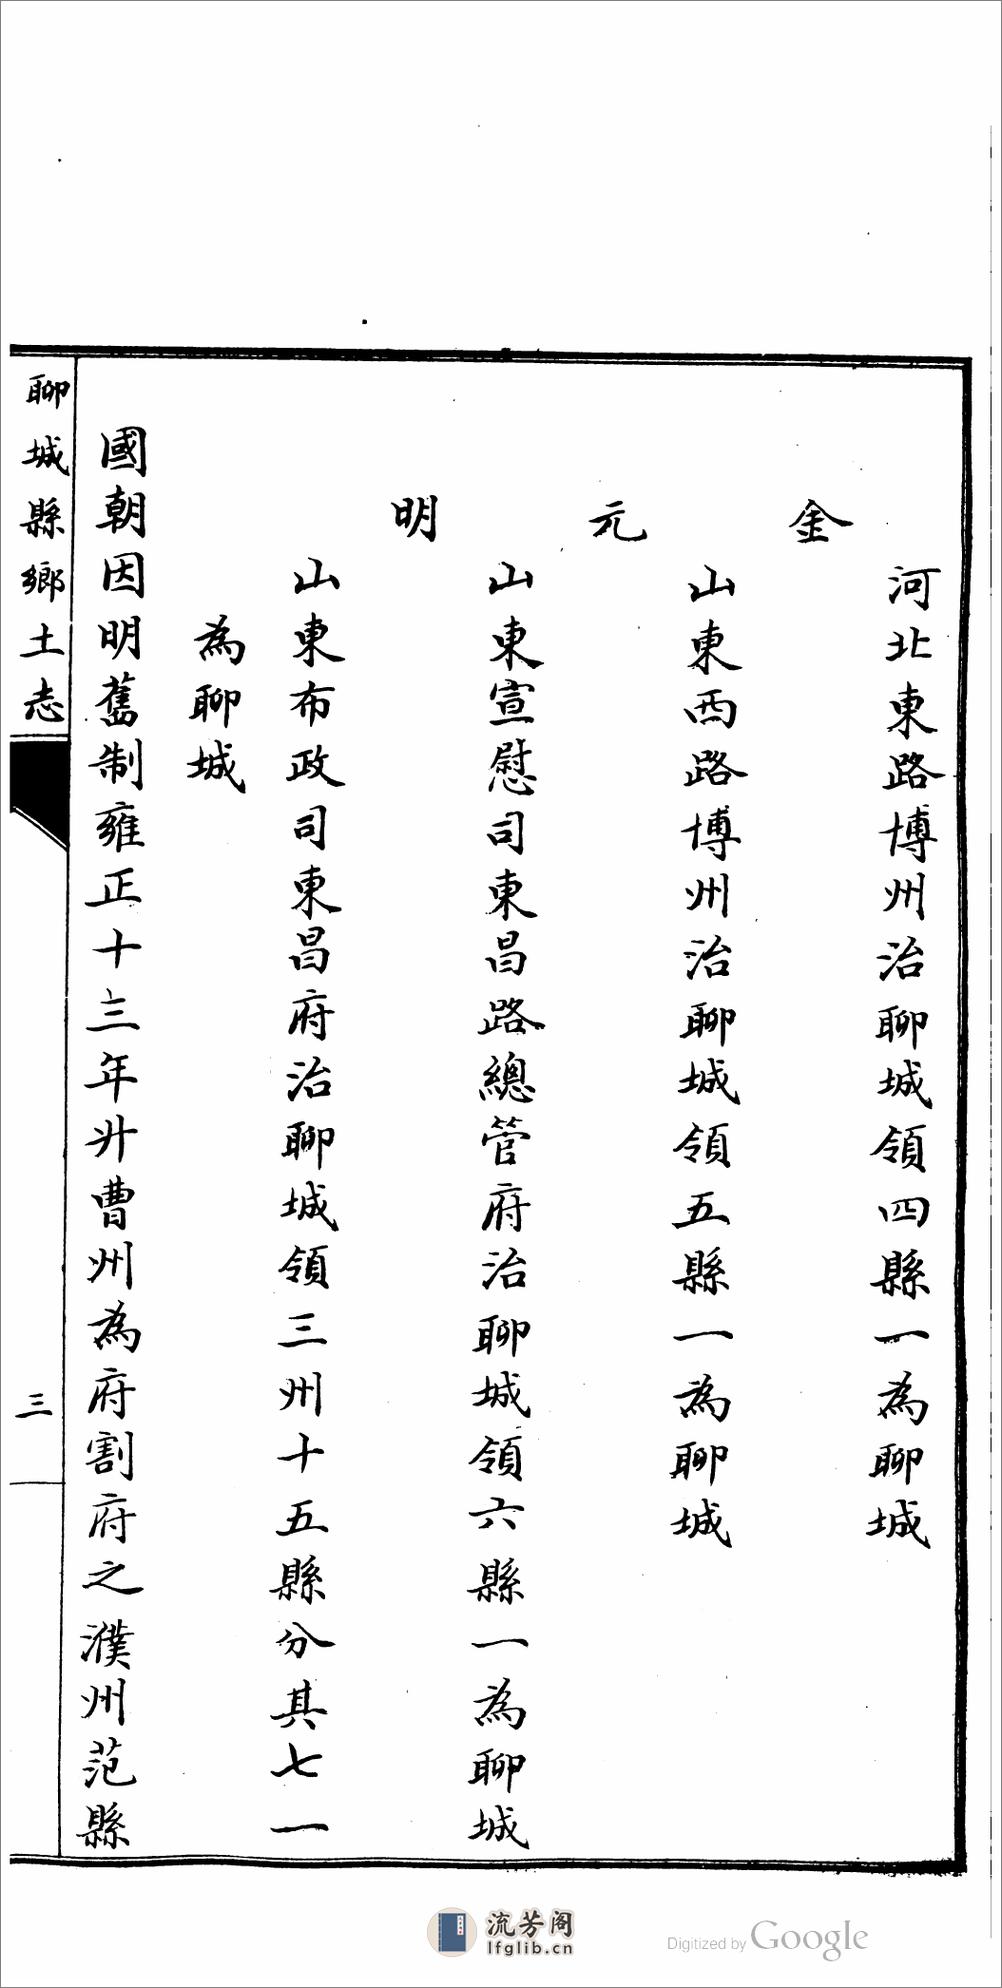 河北東路博州治聊城領四縣一為聊城
金
山東西路博州治聊城領五縣一為聊城
元
山東宣慰司東昌路總管府治聊城領六縣一為聊城
明
山東布政司東昌府治聊城領三州十五縣分其七一
為聊城
國朝因明舊制雍正十三年升曹州為府割府之濮州范縣
聊城縣鄉土志
三
流芳阁
lfglib.cn
Digitized by Google